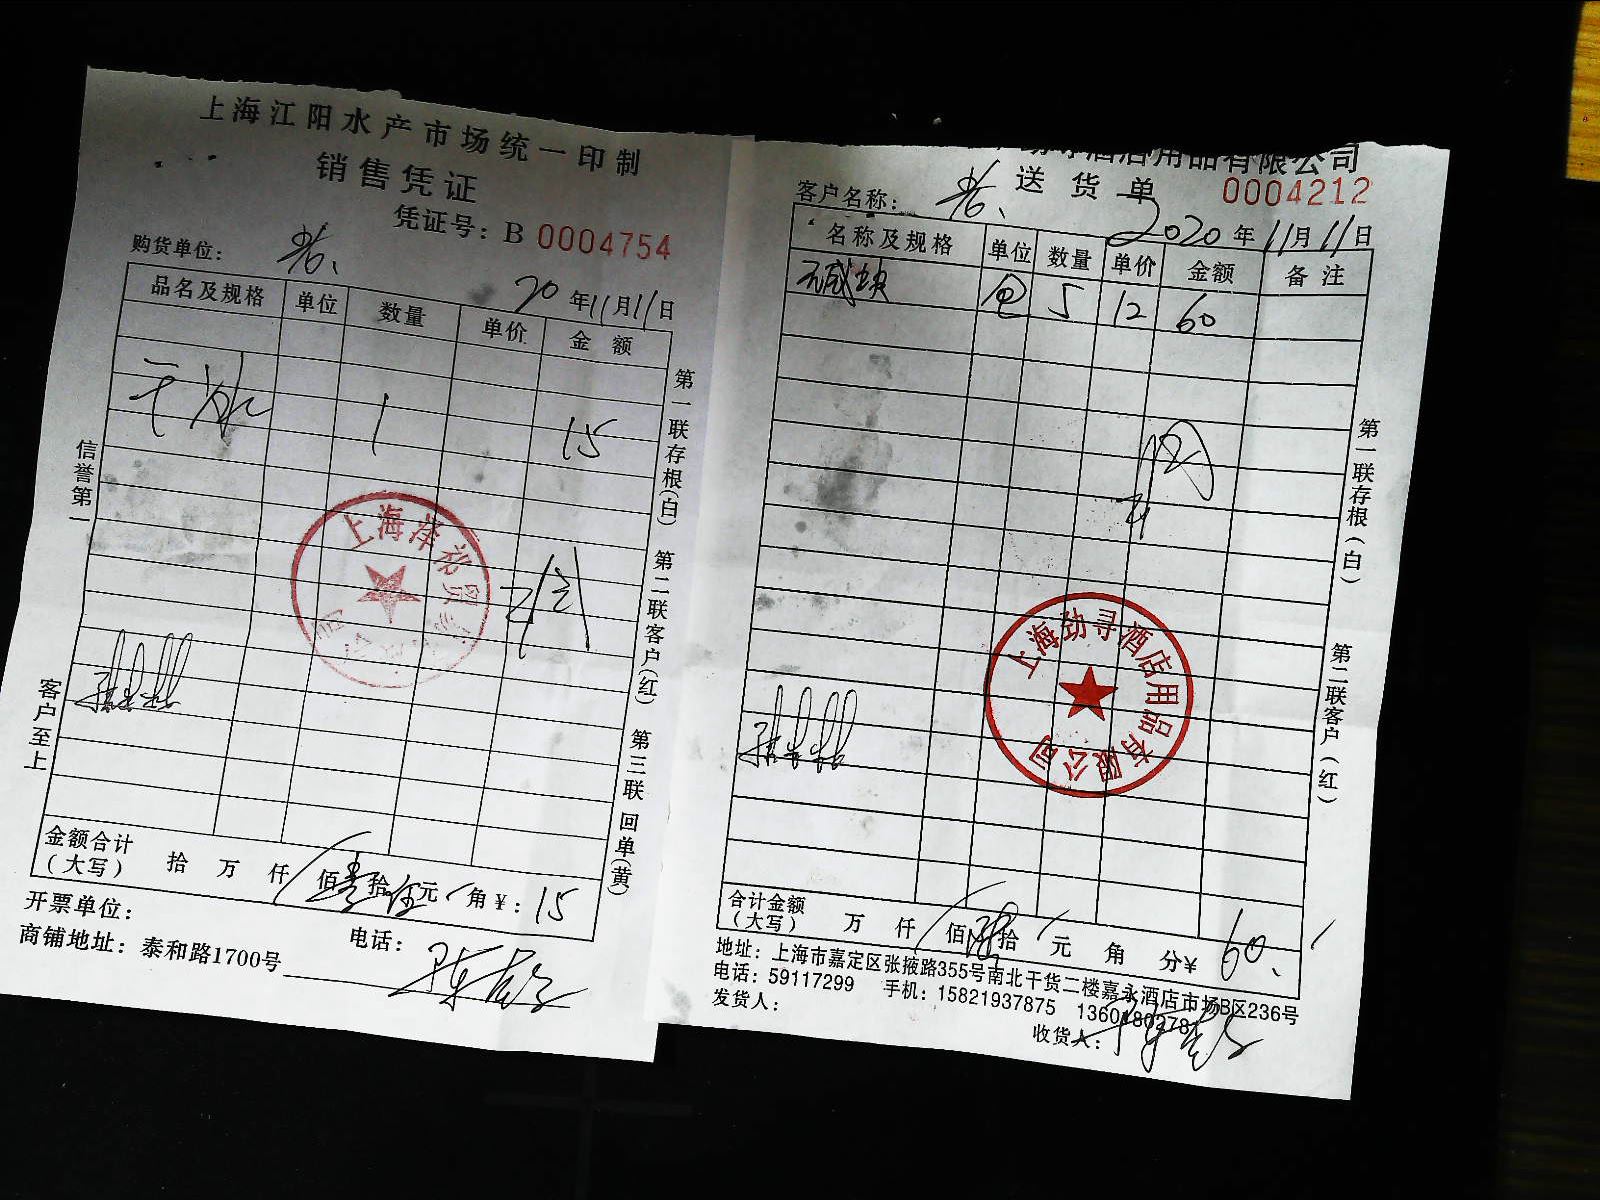 上海江阳水产市场统一印制
销售凭证
凭证号：B 0004754
购货单位：
20年11月11日
品名及规格 单位 数量 单价 金额
干冰 1 15
信誉第一
客户至上
第一联存根(白) 第二联客户(红) 第三联回单(黄)
金额合计（大写） 拾 万 仟 佰壹拾伍元 角￥：15
开票单位：
电话：
商铺地址：泰和路1700号
酒店用品有限公司
送货单
0004212
客户名称：
2020年11月11日
名称及规格 单位 数量 单价 金额 备注
包 5 12 60
第一联存根(白) 第二联客户(红)
上海劲寻酒店用品有限公司
合计金额（大写） 万 仟 佰陆拾 元 角 分￥ 60.
地址：上海市嘉定区张掖路355号南北干货二楼嘉永酒店市场B区236号
电话：59117299 手机：15821937875
发货人：
收货人：